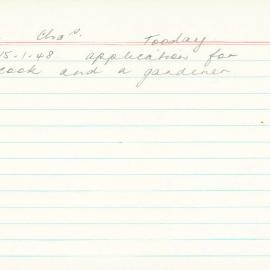 Chas. Tooday
15-1-48 application for
cook and a gardener